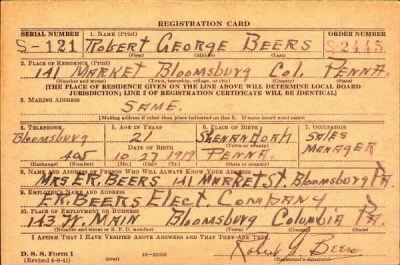 REGISTRATION CARD
SERIAL NUMBER 1. NAME (Print) ORDER NUMBER
S-121 ROBERT GEORGE BEERS S.2445
(First) (Middle) (Last)
2. PLACE OF RESIDENCE (Print)
141 MARKET BLOOMSBURG COL. PENNA.
(Number and street) (Town, township, village, or city) (County) (State)
[THE PLACE OF RESIDENCE GIVEN ON THE LINE ABOVE WILL DETERMINE LOCAL BOARD
JURISDICTION; LINE 2 OF REGISTRATION CERTIFICATE WILL BE IDENTICAL]
3. MAILING ADDRESS
SAME.
[Mailing address if other than place indicated on line 2. If same insert word same]
4. TELEPHONE 5. AGE IN YEARS 6. PLACE OF BIRTH 7. OCCUPATION
BLOOMSBURG 21 SHENANDOAH SALES
DATE OF BIRTH (Town or county) MANAGER
405 10 27 1919 PENNA.
(Exchange) (Number) (Mo.) (Day) (Yr.) (State or country)
8. NAME AND ADDRESS OF PERSON WHO WILL ALWAYS KNOW YOUR ADDRESS
MRS E.R. BEERS 141 MARKET ST. BLOOMSBURG PA.
9. EMPLOYER'S NAME AND ADDRESS
E.R. BEERS ELECT. COMPANY
10. PLACE OF EMPLOYMENT OR BUSINESS
143 W. MAIN BLOOMSBURG COLUMBIA PA.
(Number and street or R. F. D. number) (Town) (County) (State)
I AFFIRM THAT I HAVE VERIFIED ABOVE ANSWERS AND THAT THEY ARE TRUE.
D. S. S. Form 1 Robert G Beers